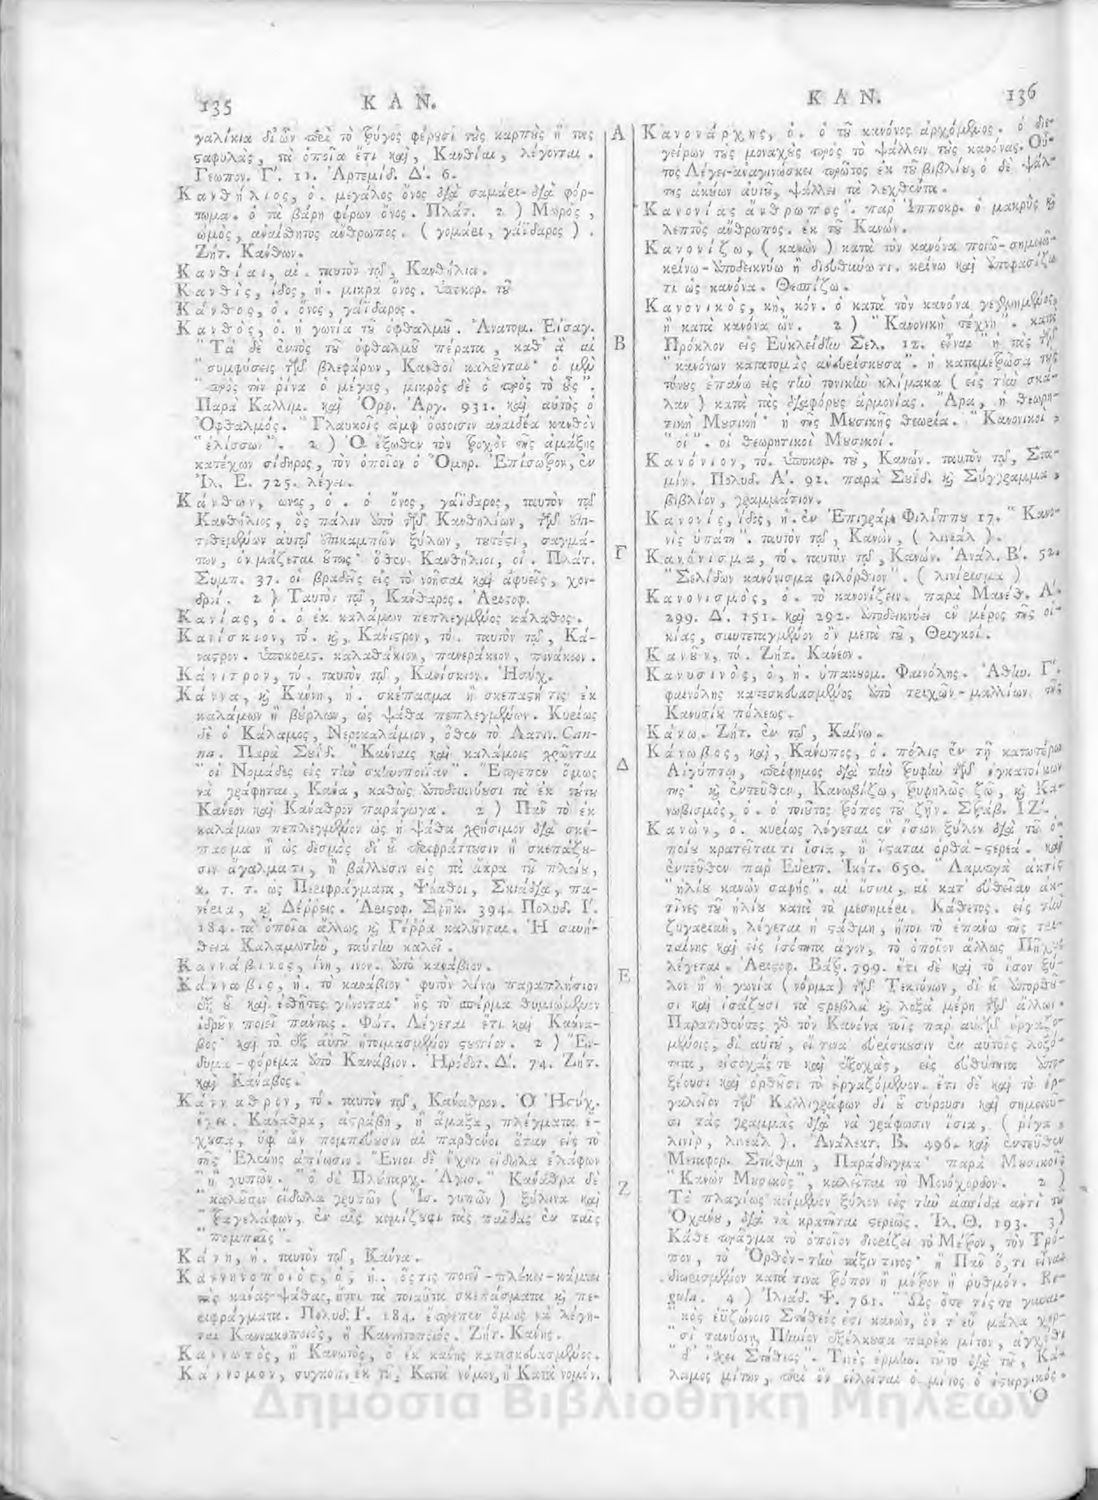 135 ΚΑΝ.
γαλίκια δι' ὧν περὶ τὸ ζύγος φέρουσι τοὺς καρποὺς ἢ τὰς
σταφυλάς, τὰ ὁποῖα ἔτι καὶ, Κανθίαι, λέγονται.
Γεωπον. Γ΄. 11. Ἀρτεμίδ. Δ. 6.
Κανθήλιος, ὁ. μεγάλος ὄνος διὰ σαμάρι-διὰ φόρ-
τωμα. ὁ τὰ βάρη φέρων ὄνος. Πλάτ. 2) Μωρὸς,
ὠμὸς, ἀναίσθητος ἄνθρωπος. (γομάρι, γαΐδαρος).
Ζήτ. Κάνθων.
Κανθίαι, αἱ. ταυτὸν τῷ, Κανθήλια.
Κανθὶς, ίδος, ἡ. μικρὰ ὄνος. ὑποκορ. τοῦ
Κάνθος, ὁ. ὄνος, γαΐδαρος.
Κανθὸς, ὁ. ἡ γωνία τοῦ ὀφθαλμοῦ. Ἀνατομ. Εἰσαγ.
"Τὰ δὲ ἐντὸς τοῦ ὀφθαλμοῦ πέρατα, καθ' ἃ αἱ
"συμφύσεις τῶν βλεφάρων, Κανθοὶ καλοῦνται· ὁ μὲν
"πρὸς τὴν ῥῖνα ὁ μέγας, μικρὸς δὲ ὁ πρὸς τὸ οὖς".
Παρὰ Καλλιμ. καὶ Ὀρφ. Ἀργ. 931. καὶ αὐτὸς ὁ
Ὀφθαλμός. "Γλαυκοῖς ἀμφ' ὄσσοισιν ἀναιδέα κανθὸν
"ἑλίσσων". 2) Ὁ ἔξωθεν τὸν τροχὸν τῆς ἁμάξης
κατέχων σίδηρος, τὸν ὁποῖον ὁ Ὅμηρ. Ἐπίσωτρον, ἐν
Ἰλ. Ε. 725. λέγει.
Κάνθων, ωνος, ὁ. ὁ ὄνος, γαΐδαρος, ταυτὸν τῷ
Κανθήλιος, ὃς πάλιν ὑπὸ τῶν Κανθηλίων, τῶν ἐπι-
τιθεμένων αὐτῷ ἐπικαμπῶν ξύλων, τουτέστι, σαγμά-
των, ὀνομάζεται οὕτως· ὅθεν Κανθήλιοι, οἱ. Πλάτ.
Συμπ. 37. οἱ βραδεῖς εἰς τὸ νοῆσαι καὶ ἀφυεῖς, χον-
δροί. 2) Ταυτὸν τῷ, Κάνθαρος. Ἀριστοφ.
Κανίας, ὁ. ὁ ἐκ καλάμων πεπλεγμένος κάλαθος.
Κανίσκιον, τό. καὶ, Κάνιστρον, τό. ταυτὸν τῷ, Κά-
ναστρον. ὑποκορις. καλαθάκιον, πανεράκιον, πινάκιον.
Κάνιτρον, τό. ταυτὸν τῷ, Κανίσκιον. Ἡσύχ.
Κάννα, καὶ Κάννη, ἡ. σκέπασμα ἢ σκεπαστήτις ἐκ
καλάμων ἢ βύρλων, ὡς ψάθα πεπλεγμένων. Κυρίως
δὲ ὁ Κάλαμος, Νεροκαλάμιον, ὅθεν τὸ Λατιν. Can-
na. Παρὰ Σουΐδ. "Κάνναις καὶ καλάμοις χρῶνται
"οἱ Νομάδες εἰς τὴν σκηνοποιΐαν". Ἔπρεπεν ὅμως
νὰ γράφηται, Κάνα, καθὼς ὑποδεικνύουσι τὰ ἐκ τούτου
Κάνεον καὶ Κάναθρον παράγωγα. 2) Πᾶν τὸ ἐκ
καλάμων πεπλεγμένον ὡς ἡ ψάθα χρήσιμον διὰ σκέ-
πασμα ἢ ὡς δεσμὸς δι' οὗ περιφράττουσιν ἢ σκεπάζου-
σιν ἀγάλματι, ἢ βάλλουσιν εἰς τὰ ἄκρα τοῦ πλοίου,
κ. τ. τ. ὡς Περιφράγματα, Ψίαθοι, Σκιάδια, πα-
νέρια, καὶ Δέρρεις. Ἀριστοφ. Σφηκ. 394. Πολυδ. Γ΄.
184. τὰ ὁποῖα ἄλλως καὶ Γέρρα καλοῦνται. Ἡ συνή-
θεια Καλαμωτὴν, ταύτην καλεῖ.
Καννάβινος, ίνη, ινον. ὑπὸ καννάβιον.
Κάνναβις, ἡ. τὸ κανάβιον· φυτὸν λίνῳ παραπλήσιον
ἐξ οὗ καὶ ἐσθῆτες γίνονται· ἧς τὸ σπέρμα θυμιώμενον
ἱδροῦν ποιεῖ πάντας. Φώτ. Λέγεται ἔτι καὶ Κάννα-
βος· καὶ τὸ ἐξ αὐτοῦ ἡτοιμασμένον στυπίον. 2) Ἔν-
δυμα-φόρεμα ὑπὸ Κανάβιον. Ἡρόδοτ. Δ΄. 74. Ζήτ.
καὶ Κάναβος.
Κάνναθρον, τό. ταυτὸν τῷ, Κάναθρον. Ὁ Ἡσύχ.
ἔχει. Κάναθρα, ἀστράβη, ἢ ἅμαξα, πλέγματα ἔ-
χουσα, ὑφ' ὧν πομπεύουσιν αἱ παρθένοι ὅταν εἰς τὸ
τῆς Ἑλένης ἀπίωσιν. Ἔνιοι δὲ ἔχειν εἴδωλα ἐλάφων
"ἢ γυπῶν. "ὁ δὲ Πλούταρχ. Ἀγισ. "Κάναθρα δὲ
"καλοῦσιν εἴδωλα γρυπῶν (Ἴσ. γυπῶν) ξύλινα καὶ
"τραγελάφων, ἐν αἷς κομίζουσι τὰς παῖδας ἐν ταῖς
"πομπαῖς".
Κάννη, ἡ. ταυτὸν τῷ, Κάννα.
Καννηνοποιὸς, ὁ, ἡ. ὅστις ποιεῖ-πλέκει-κάμνει
τὰς κάνας-ψάθας, ἤτοι τὰ τοιαῦτα σκεπάσματα καὶ πε-
ριφράγματα. Πολυδ. Γ΄. 184. ἔπρεπεν ὅμως νὰ λέγη-
ται Καννακοποιὸς, ἢ Καννητοποιός. Ζήτ. Κάνης.
Καννωτὸς, ἢ Κανωτὸς, ὁ ἐκ κάνης κατεσκευασμένος.
Κάννομον, συγκοπ. ἐκ τοῦ, Κατὰ νόμον, ἢ Κατὰ νομόν.
Α
Β
Γ
Δ
Ε
Ζ
ΚΑΝ. 136
Κανονάρχης, ὁ. ὁ τοῦ κανόνος ἀρχόμενος. ὁ διε-
γείρων τοὺς μοναχοὺς πρὸς τὸ ψάλλειν τοὺς κανόνας. Οὗ-
τος λέγει-ἀναγινώσκει πρῶτος ἐκ τοῦ βιβλίου, ὁ δὲ ψάλ-
της ἀκούων αὐτοῦ, ψάλλει τὰ λεχθέντα.
Κανονίας ἄνθρωπος". παρ' Ἱπποκρ. ὁ μακρὸς καὶ
λεπτὸς ἄνθρωπος. ἐκ τοῦ Κανών.
Κανονίζω, (κανὼν) κατὰ τὸν κανόνα ποιῶ-σημειῶ-
κρίνω-ὑποδεικνύω ἢ διευθύνω τι. κρίνω καὶ ἀποφασίζω
τι ὡς κανόνα. Θεσπίζω.
Κανονικὸς, κὴ, κόν. ὁ κατὰ τὸν κανόνα γεγραμμένος,
ἢ κατὰ κανόνα ὤν. 2) "Κανονικὴ τέχνη". κατὰ
Πρόκλον εἰς Εὐκλείδην Σελ. 12. εἶναι "ἡ τὰς τῶν
"κανόνων κατατομὰς ἀνευρίσκουσα". ἡ καταμετρῶσα τοὺς
τόνους ἐπάνω εἰς τὴν τονικὴν κλίμακα (εἰς τὴν σκά-
λαν) κατὰ τὰς διαφόρους ἁρμονίας. "Ἄρα, ἡ θεωρη-
τικὴ Μουσική· ἢ τῆς Μουσικῆς θεωρία. "Κανονικοὶ,
"οἱ". οἱ θεωρητικοὶ Μουσικοί.
Κανόνιον, τό. ὑποκορ. τοῦ, Κανών. ταυτὸν τῷ, Στα-
μίν. Πολυδ. Α΄. 92. παρὰ Σουΐδ. καὶ Σύγγραμμα,
βιβλίον, γραμμάτιον.
Κανονὶς, ίδος, ἡ. ἐν Ἐπιγράμ. Φιλίππου 17. "Κανο-
νὶς ὑπάτη". ταυτὸν τῷ, Κανών, (λινεάλ).
Κανόνισμα, τό. ταυτὸν τῷ, Κανών. Ἀνάλ. Β΄. 52.
"Σελίδων κανόνισμα φιλόρθιον". (λινίεισμα)
Κανονισμὸς, ὁ. τὸ κανονίζειν. παρὰ Μανέθ. Α΄.
299. Δ΄. 151. καὶ 292. ὑποδεικνύει ἓν μέρος τῆς οἰ-
κίας, συντεταγμένον ὂν μετὰ τοῦ, Θριγκοί.
Κανοῦν, τό. Ζήτ. Κάνεον.
Κανυσῖνος, ὁ, ἡ. ὑπακουομ. Φαινόλης. Ἀθήν. Γ΄.
φαινόλης κατεσκευασμένος ὑπὸ τριχῶν-μαλλίων τῆς
Κανυσίου πόλεως.
Κάνω. Ζήτ. ἐν τῷ, Καίνω.
Κάνωβος, καὶ, Κάνωπος, ὁ. πόλις ἐν τῇ κατωτέρῳ
Αἰγύπτῳ, περίφημος διὰ τὴν τρυφὴν τῶν ἐγκατοίκων
της· καὶ ἐντεῦθεν, Κανωβίζω, τρυφηλῶς ζῶ, καὶ Κα-
νωβισμὸς, ὁ. ὁ τοιοῦτος τρόπος τοῦ ζῆν. Στράβ. ΙΖ΄.
Κανὼν, ὁ. κυρίως λέγεται ἓν ἴσιον ξύλον διὰ τοῦ ὁ-
ποίου κρατεῖται τι ἴσια, ἢ ἵσταται ὀρθὰ-στερεά. καὶ
ἐντεῦθεν παρ' Εὐριπ. Ἱκέτ. 650. "Λαμπρὰ ἀκτὶς
"ἡλίου κανὼν σαφής". αἱ ἴσιαι, αἱ κατ' εὐθεῖαν ἀκ-
τῖνες τοῦ ἡλίου κατὰ τὸ μεσημέρι. Κάθετος. εἰς τὴν
ζυγαριὰν, λέγεται ἡ στάθμη, ἤτοι τὸ ἐπάνω τῆς τρυ-
τάνης καὶ εἰς ἰσότητα ἄγον, τὸ ὁποῖον ἄλλως Πῆχυς
λέγεται. Ἀριστοφ. Βάτρ. 799. ἔτι δὲ καὶ τὸ ἴσον ξύ-
λον ἢ ἡ γωνία (νόρμα) τῶν Τεκτόνων, δι' οὗ διορθοῦ-
σι καὶ ἰσάζουσι τὰ στρεβλὰ καὶ λοξὰ μέρη τῶν ἄλλων.
Παρατιθέντες γὰρ τὸν Κανόνα τοῖς παρ' αὐτῶν ἐργαζο-
μένοις, δι' αὐτοῦ, εἴ τινα εὑρίσκουσιν ἐν αὐτοῖς λοξό-
τητα, εἰσοχάς τε καὶ ἐξοχὰς, εἰς εὐθύτητα ὑπο-
ξέουσι καὶ ὀρθοῦσι τὸ ἐργαζόμενον. ἔτι δὲ καὶ τὸ ἐρ-
γαλεῖον τῶν Καλλιγράφων δι' οὗ σύρουσι καὶ σημειοῦ-
σι τὰς γραμμὰς διὰ νὰ γράφωσιν ἴσια, (ῥίγα,
λινίρ, λινεάλ). Ἀνάλεκτ. Β. 496. καὶ ἐντεῦθεν
Μεταφορ. Στάθμη, Παράδειγμα· παρὰ Μουσικοῖς
"Κανὼν Μουσικὸς", καλεῖται τὸ Μονόχορδον. 2)
Τὸ πλαγίως κείμενον ξύλον εἰς τὴν ἀσπίδα ἀντὶ τοῦ
Ὀχάνου, διὰ νὰ κρατῆται στερεῶς. Ἰλ. Θ. 193. 3)
Κάθε πρᾶγμα τὸ ὁποῖον διορίζει τὸ Μέτρον, τὸν Τρό-
πον, τὸ Ὀρθὸν-τὴν τάξιν τινος· ἢ Πᾶν ὅ,τι εἶναι
διωρισμένον κατά τινα τρόπον ἢ μέτρον ἢ ῥυθμόν. Re-
gula. 4) Ἰλιάδ. Ψ. 761. "Ὡς ὅτε τίς τε γυναι-
"κὸς ἐϋζώνοιο Στήθεός ἐστι κανών, ὅν τ' εὖ μάλα χερ-
"σὶ τανύσσῃ, Πηνίον ἐξέλκουσα παρὲκ μίτον, ἀγχόθι
"δ' ἴσχει Στήθεος". Τινὲς ἑρμήν. τοῦτο διὰ τοῦ, Κά-
λαμος μίτων, περὶ ὃν εἱλεῖται ὁ μίτος ὁ ἱστουργικός.
Ὁ
Δημόσια Βιβλιοθήκη Μηλεών